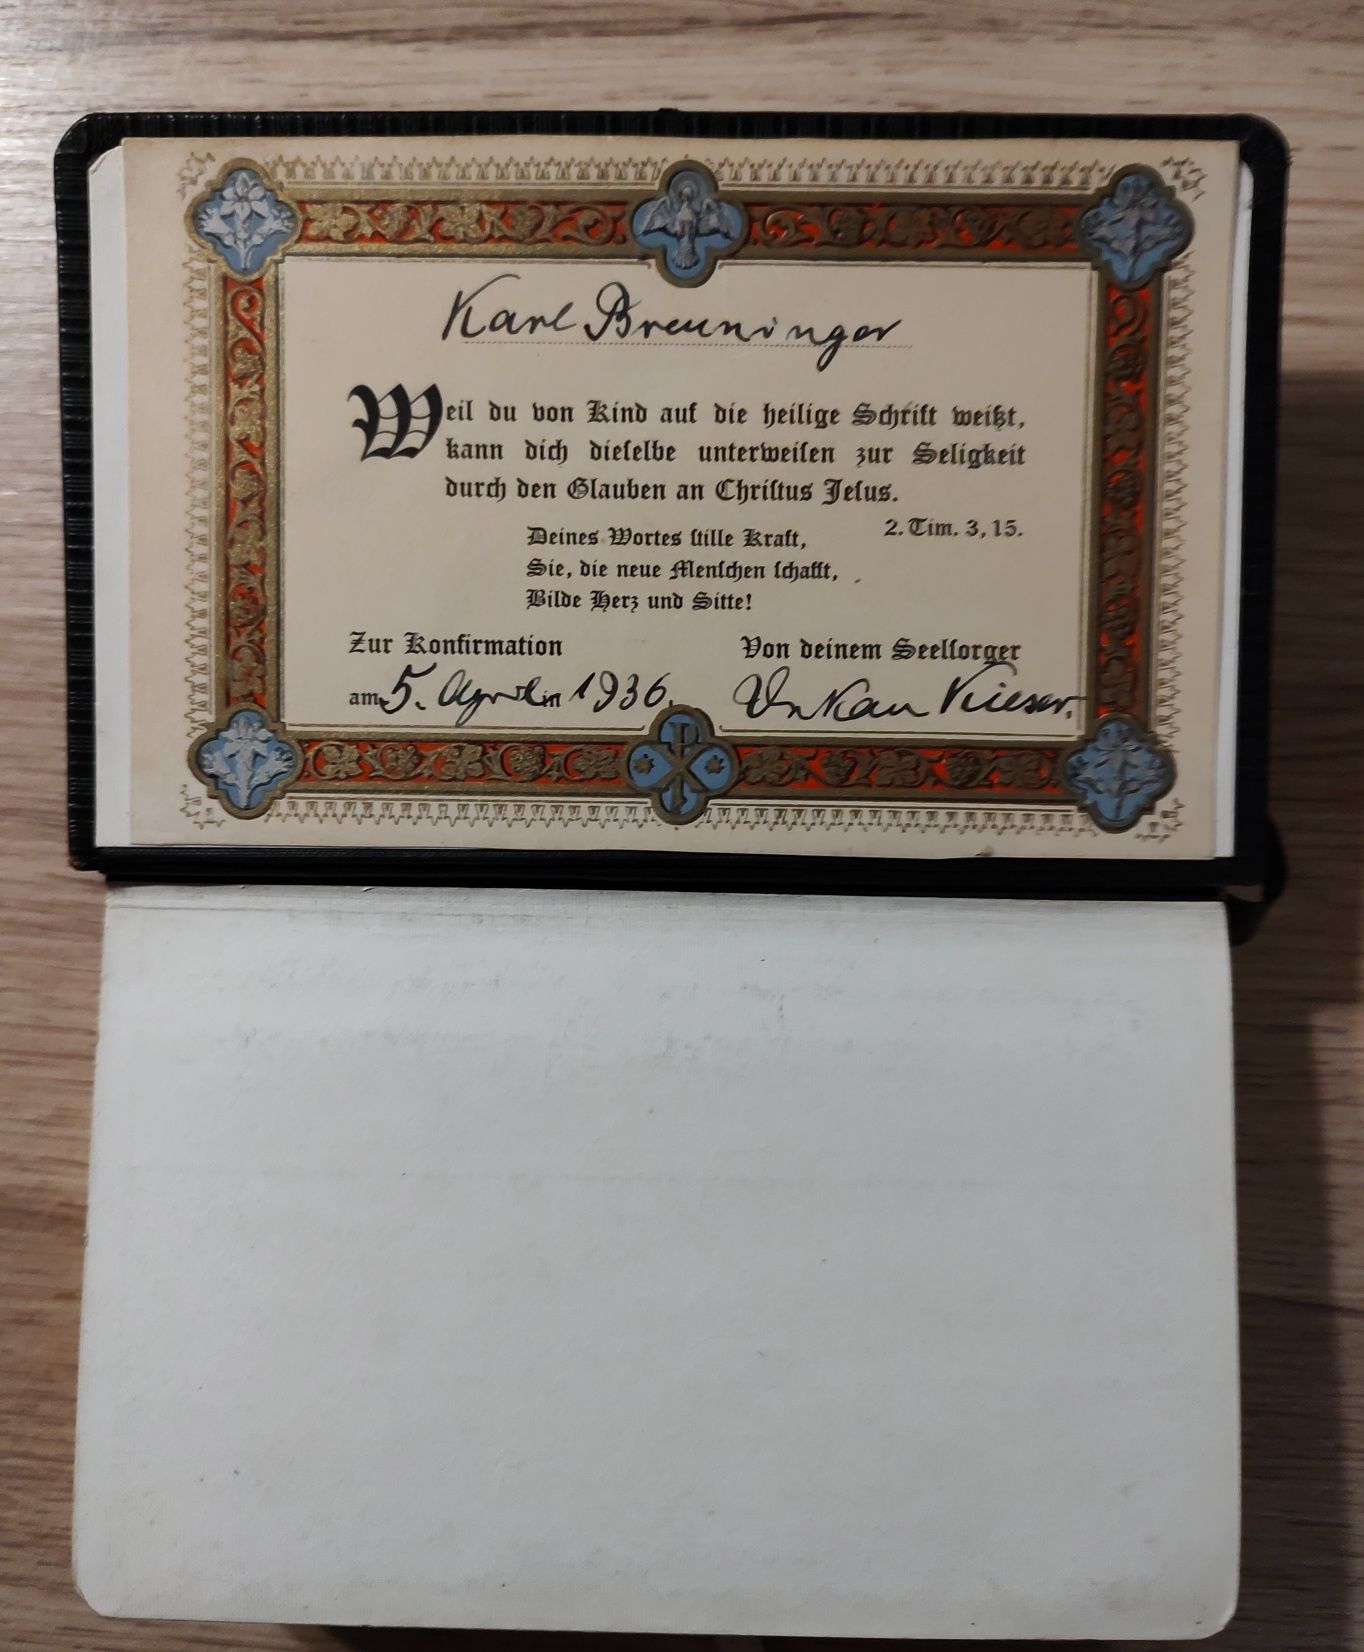 Karl Breuninger
Weil du von Kind auf die heilige Schrift weißt,
kann dich dieselbe unterweisen zur Seligkeit
durch den Glauben an Christus Jesus.
2. Tim. 3, 15.
Deines Wortes stille Kraft,
Sie, die neue Menschen schafft,
Bilde Herz und Sitte!
Zur Konfirmation
am 5. April in 1936.
Von deinem Seelsorger
Kieser.